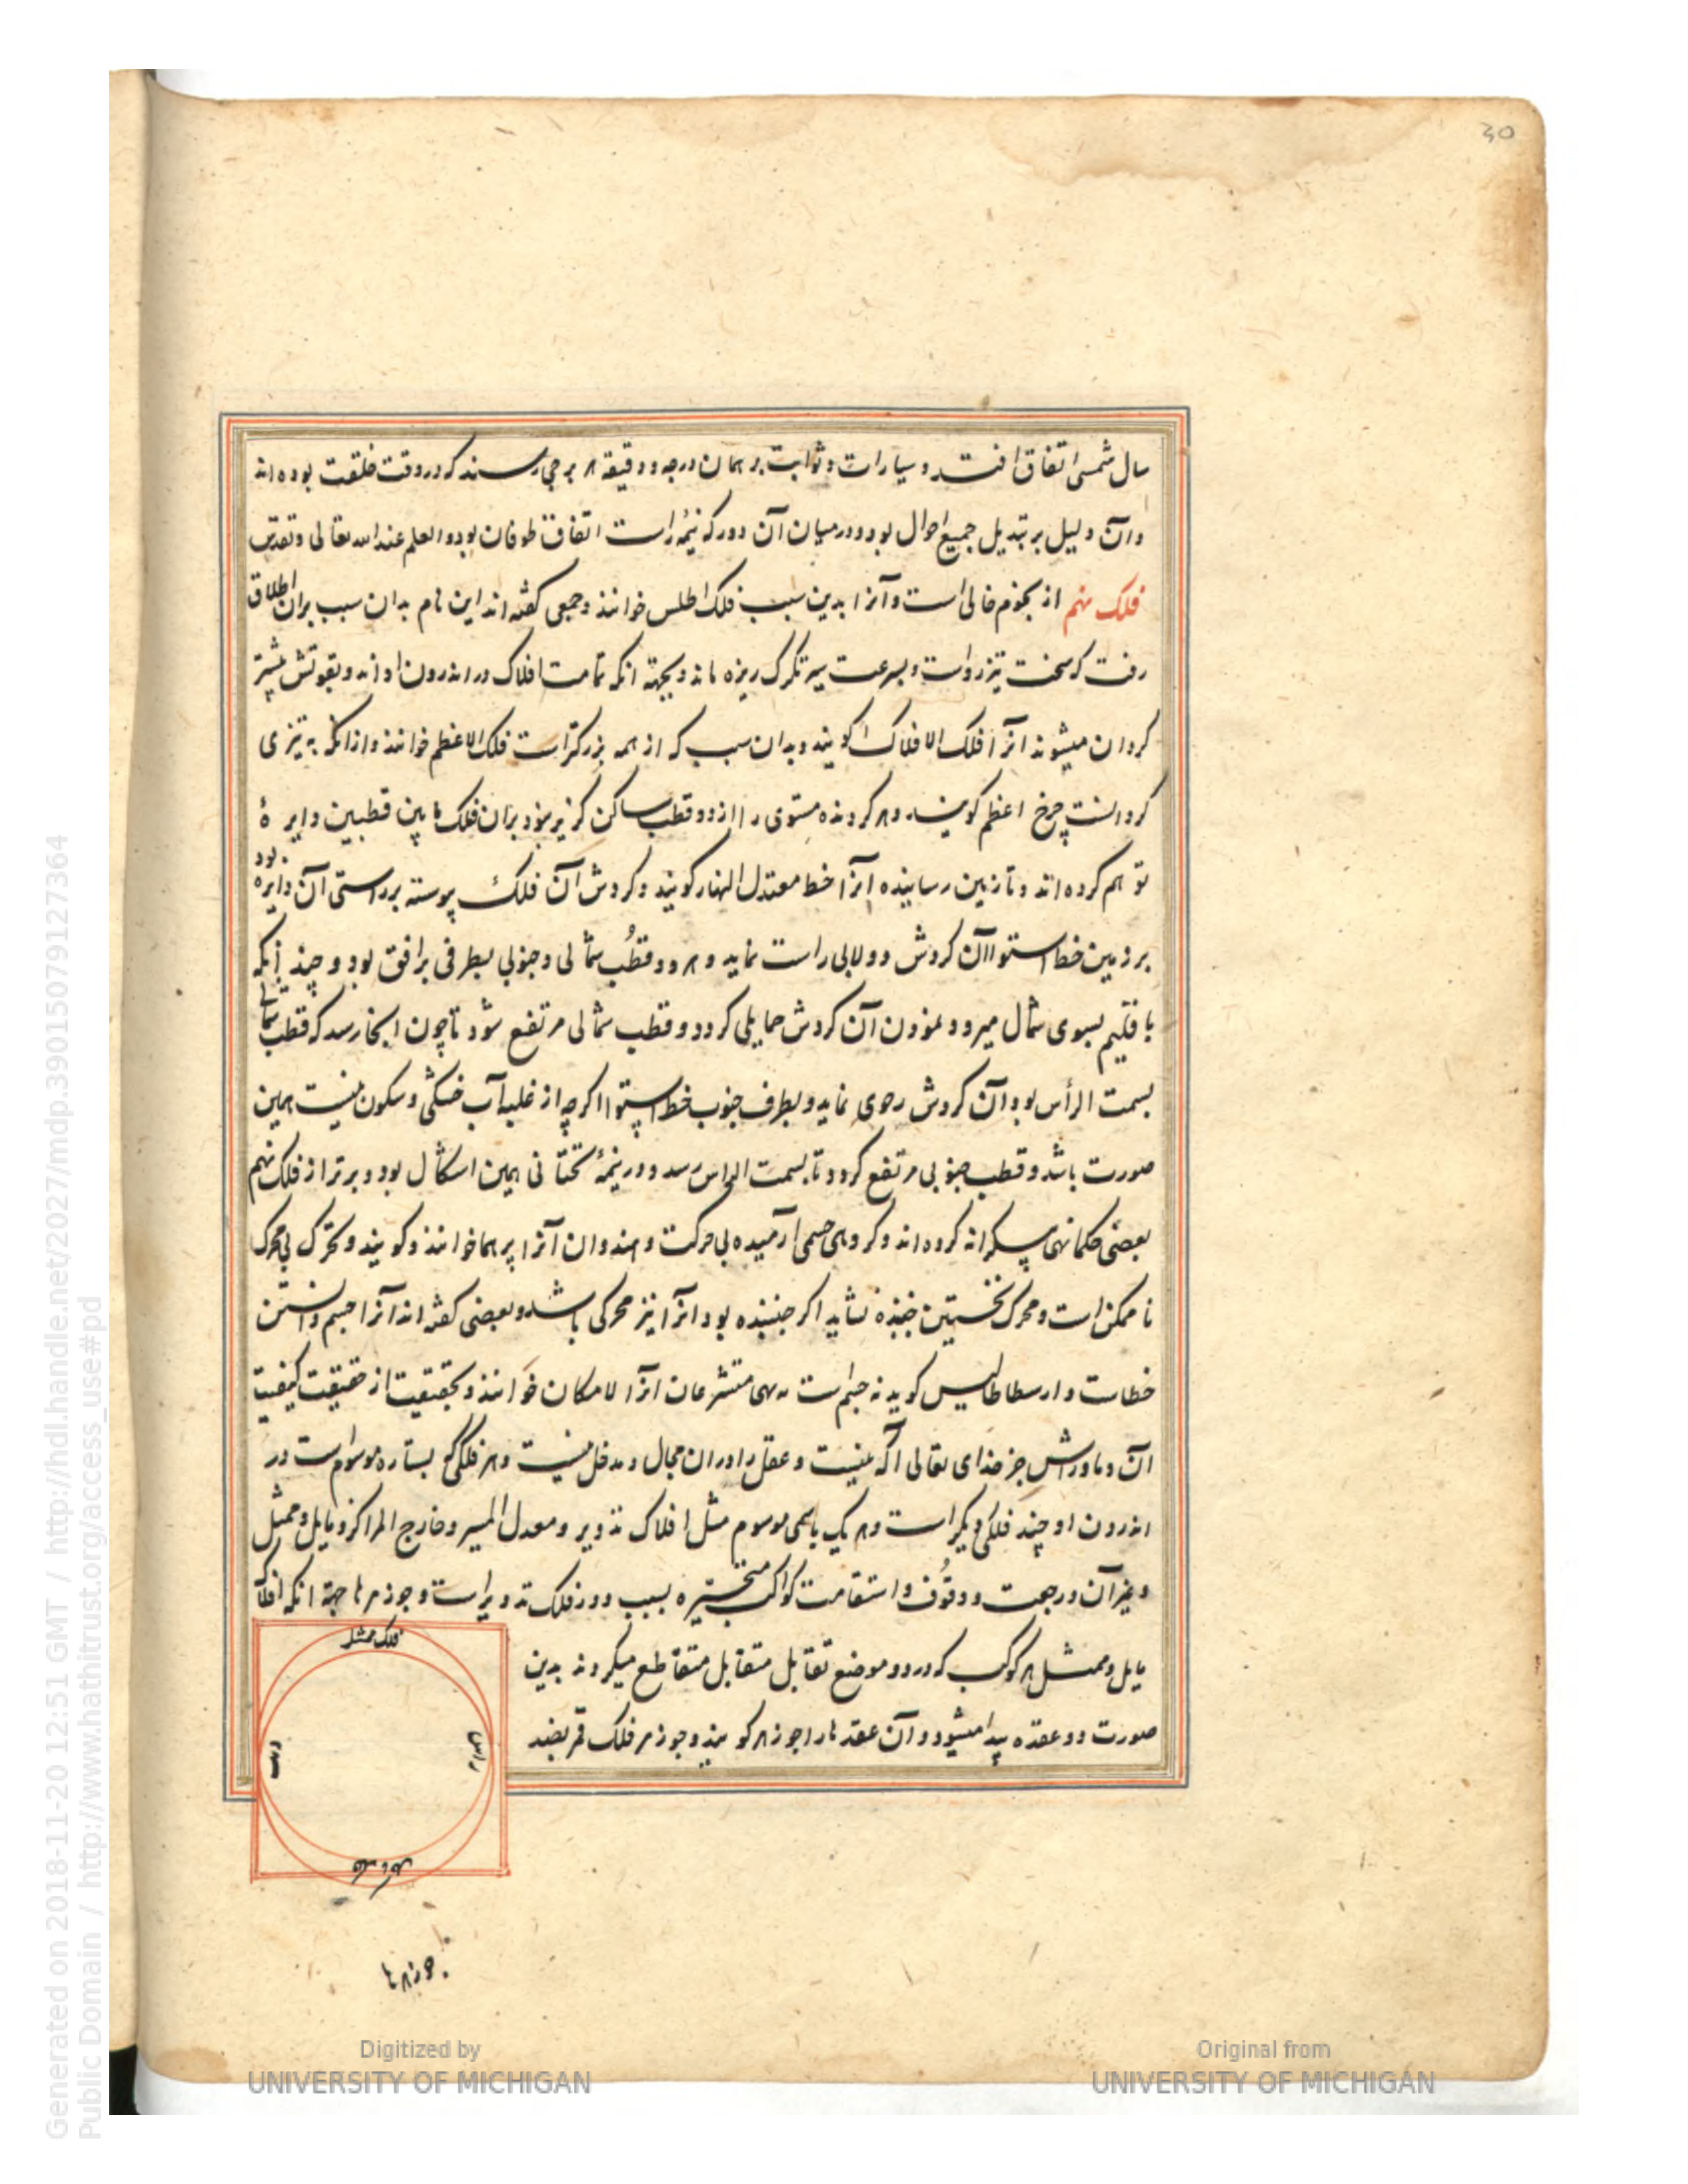 30
سال شمسی اتفاق افتد و سیارات و ثوابت بر همان درجه و دقیقه هر برجی رسند که در وقت خلقت بوده اند
و آن دلیل بر تبدیل جمیع احوال بود و در میان آن دور که نیمه است اتفاق طوفان بود و العلم عند الله تعالی و تقدس
فلک نهم از نجوم خالی است و آنرا بدین سبب فلک اطلس خوانند و جمعی گفته اند این نام بدان سبب بران اطلاق
رفت که سخت تیز رو است و بسرعت سیر تگرگ ریزه ماند و بجهة انکه تمامت افلاک در اندرون او اند و بقوتش بیشتر
کردان میشوند انرا فلک الافلاک کویند و بدان سبب که از همه بزرکتر است فلک الاعظم خوانند و ازانکه به تیزی
کردانست چرخ اعظم کویند و هر کردنده مستوی را از دو قطب ساکن کزیر نبود بران فلک مابین قطبین دایرهٔ
توهم کرده اند و تا زمین رسانیده انرا خط معتدل النهار کویند و کردش آن فلک پیوسته بر راستی آن دایره بود
بر زمین خط استوا آن کردش دولابی راست نماید و هر دو قطب شمالی و جنوبی بطرفی بر افق بود و چند آنکه
باقلیم بسوی شمال میرود نمودن آن کردش حمایلی کردد و قطب شمالی مرتفع شود تا چون انجا رسد که قطب شمالی
بسمت الرأس بود آن کردش رحوی نماید و بطرف جنوب خط استوا اکرچه از غلبه آب خشکی و سکون نیست همین
صورت باشد و قطب جنوبی مرتفع کردد تا بسمت الراس رسد و در نیمهٔ تحتانی همین اشکال بود و برتر از فلک نهم
بعضی حکما نهی بیکرانه کرده اند و کروهی جسمی آرمیده بی حرکت و هندوان آنرا برهما خوانند و کویند و تحرک بی محرک
نا ممکن است و محرک نخستین جنبنده نشاید اکر جنبنده بود انرا نیز محرکی باشد و بعضی گفته اند آنرا جسم دانستن
خطاست و ارسطاطالیس کوید نه جسم است نه تهی متشرعان انرا لامکان خوانند و بحقیقت از حقیقت کیفیت
آن و ماورایش جز خدای تعالی آگه نیست و عقل را در ان مجال و مدخل نیست و هر فلکی که بستاره موسوم است در
اندرون او چند فلکی دیکر است و هر یک باسمی موسوم مثل افلاک تدویر و معدل المسیر و خارج المراکز و مایل و ممثل
و غیر آن و رجعت و وقوف و استقامت کواکب متحیره بسبب دور فلک تدویر است و جوزهرها جهة انکه افلاک
مایل و ممثل هر کوکب که در دو موضع تقابل متقابل متقاطع میکردند بدین
صورت دو عقده پیدا میشود و آن عقدها را جوزهر کویند و جوزهر فلک قمر بضد
فلک ممثل
راس
ذنب
فلک مایل
جوزهرها
Digitized by
UNIVERSITY OF MICHIGAN
Original from
UNIVERSITY OF MICHIGAN
Generated on 2018-11-20 12:51 GMT / http://hdl.handle.net/2027/mdp.39015079127364
Public Domain / http://www.hathitrust.org/access_use#pd